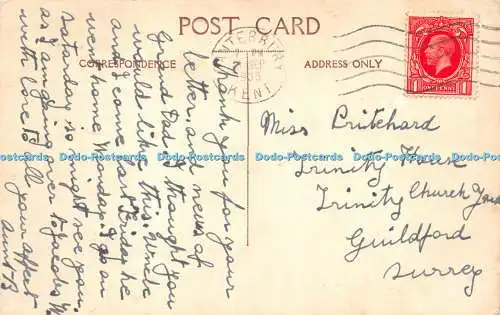 POST CARD
CORRESPONDENCE
ADDRESS ONLY
KENT
ONE PENNY
1 1
Thank you for your
letter and news of
Grand Dad. I thought you
would like this. Uncle
and I came last Friday he
went home Monday I go on
Saturday, so might see you.
as I am going over to
with love to all your affect
aunt
Miss Pritchard
Trinity House
Trinity Church Yard
Guildford
Surrey
Dodo-Postcards Dodo-Postcards Dodo-Postcards Dodo-Postcards Dodo-Postcards Dodo-Postcards Dodo-Postcards Dodo-Postcards